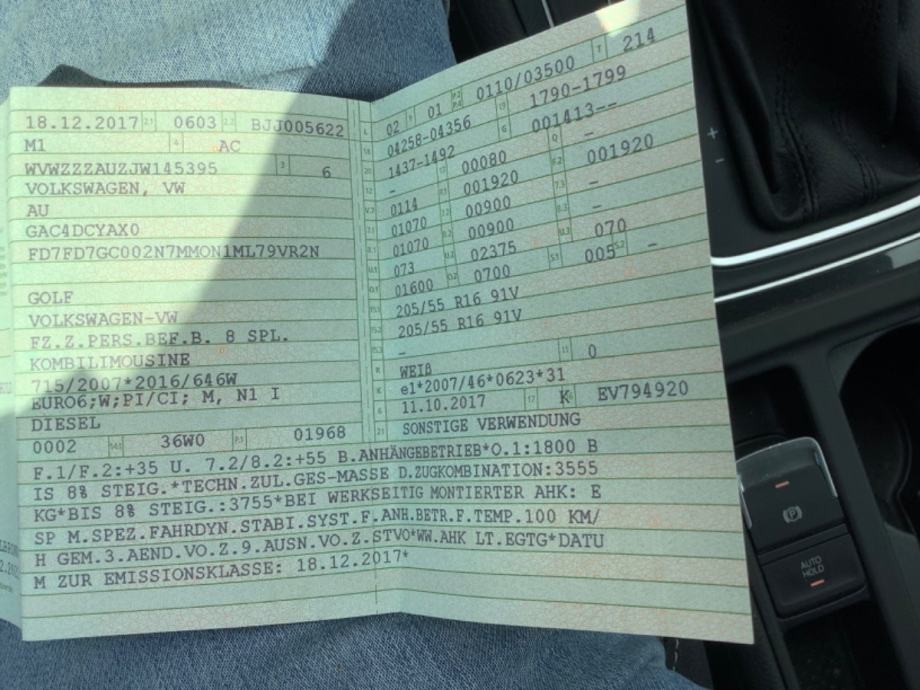 18.12.2017 2.1 0603 2.2 BJJ005622
M1 4 AC
WVWZZZAUZJW145395 3 6
VOLKSWAGEN, VW
AU
GAC4DCYAX0
FD7FD7GC002N7MMON1ML79VR2N
GOLF
VOLKSWAGEN-VW
FZ.Z.PERS.BEF.B. 8 SPL.
KOMBILIMOUSINE
715/2007*2016/646W
EURO6;W;PI/CI; M, N1 I
DIESEL
0002 14.1 36W0 P.3 01968
L 02 9 01 P.2 P.4 0110/03500 T 214
18 04258-04356 19 1790-1799
20 1437-1492 G 001413--
12 - 13 00080 Q -
V.7 0114 F.1 001920 F.2 001920
7.1 01070 7.2 00900 7.3 -
8.1 01070 8.2 00900 8.3 -
U.1 073 U.2 02375 U.3 070
O.1 01600 O.2 0700 S.1 005 S.2 -
15.1 205/55 R16 91V
15.2 205/55 R16 91V
15.3 -
R WEIß 11 0
K e1*2007/46*0623*31
6 11.10.2017 17 K 16 EV794920
21 SONSTIGE VERWENDUNG
F.1/F.2:+35 U. 7.2/8.2:+55 B.ANHÄNGEBETRIEB*O.1:1800 B
IS 8% STEIG.*TECHN.ZUL.GES-MASSE D.ZUGKOMBINATION:3555
KG*BIS 8% STEIG.:3755*BEI WERKSEITIG MONTIERTER AHK: E
SP M.SPEZ.FAHRDYN.STABI.SYST.F.ANH.BETR.F.TEMP.100 KM/
H GEM.3.AEND.VO.Z.9.AUSN.VO.Z.STVO*WW.AHK LT.EGTG*DATU
M ZUR EMISSIONSKLASSE: 18.12.2017*
+
-
P
AUTO
HOLD